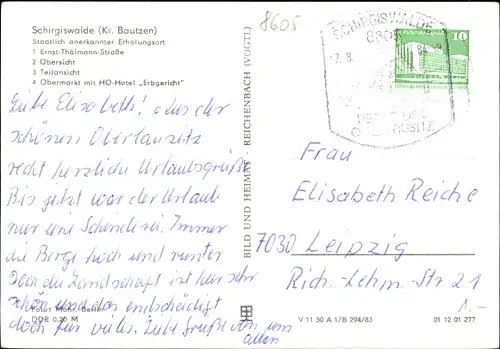 Schirgiswalde (Kr. Bautzen)
Staatlich anerkannter Erholungsort
1 Ernst-Thälmann-Straße
2 Übersicht
3 Teilansicht
4 Obermarkt mit HO-Hotel „Erbgericht“
Liebe Elisabeth! Aus der
schönen Oberlausitz
recht herzliche Urlaubsgrüße
Bis jetzt war der Urlaub
nur eine Schinderei. Immer
die Berge hoch und runter
Doch die Landschaft ist sehr
schön und das entschädigt
doch für vieles. Liebe Grüße von uns
allen
Foto: Mohr,
DDR 0,20 M
BILD UND HEIMAT · REICHENBACH (VOGTL)
8605
SCHIRGISWALDE
8605
7. 8.
PERLE DER
OBERLAUSITZ
10
Frau
Elisabeth Reiche
7030 Leipzig
Rich.-Lehm.-Str. 21
1.-
V 11 50 A 1/B 294/83
01 12 01 277